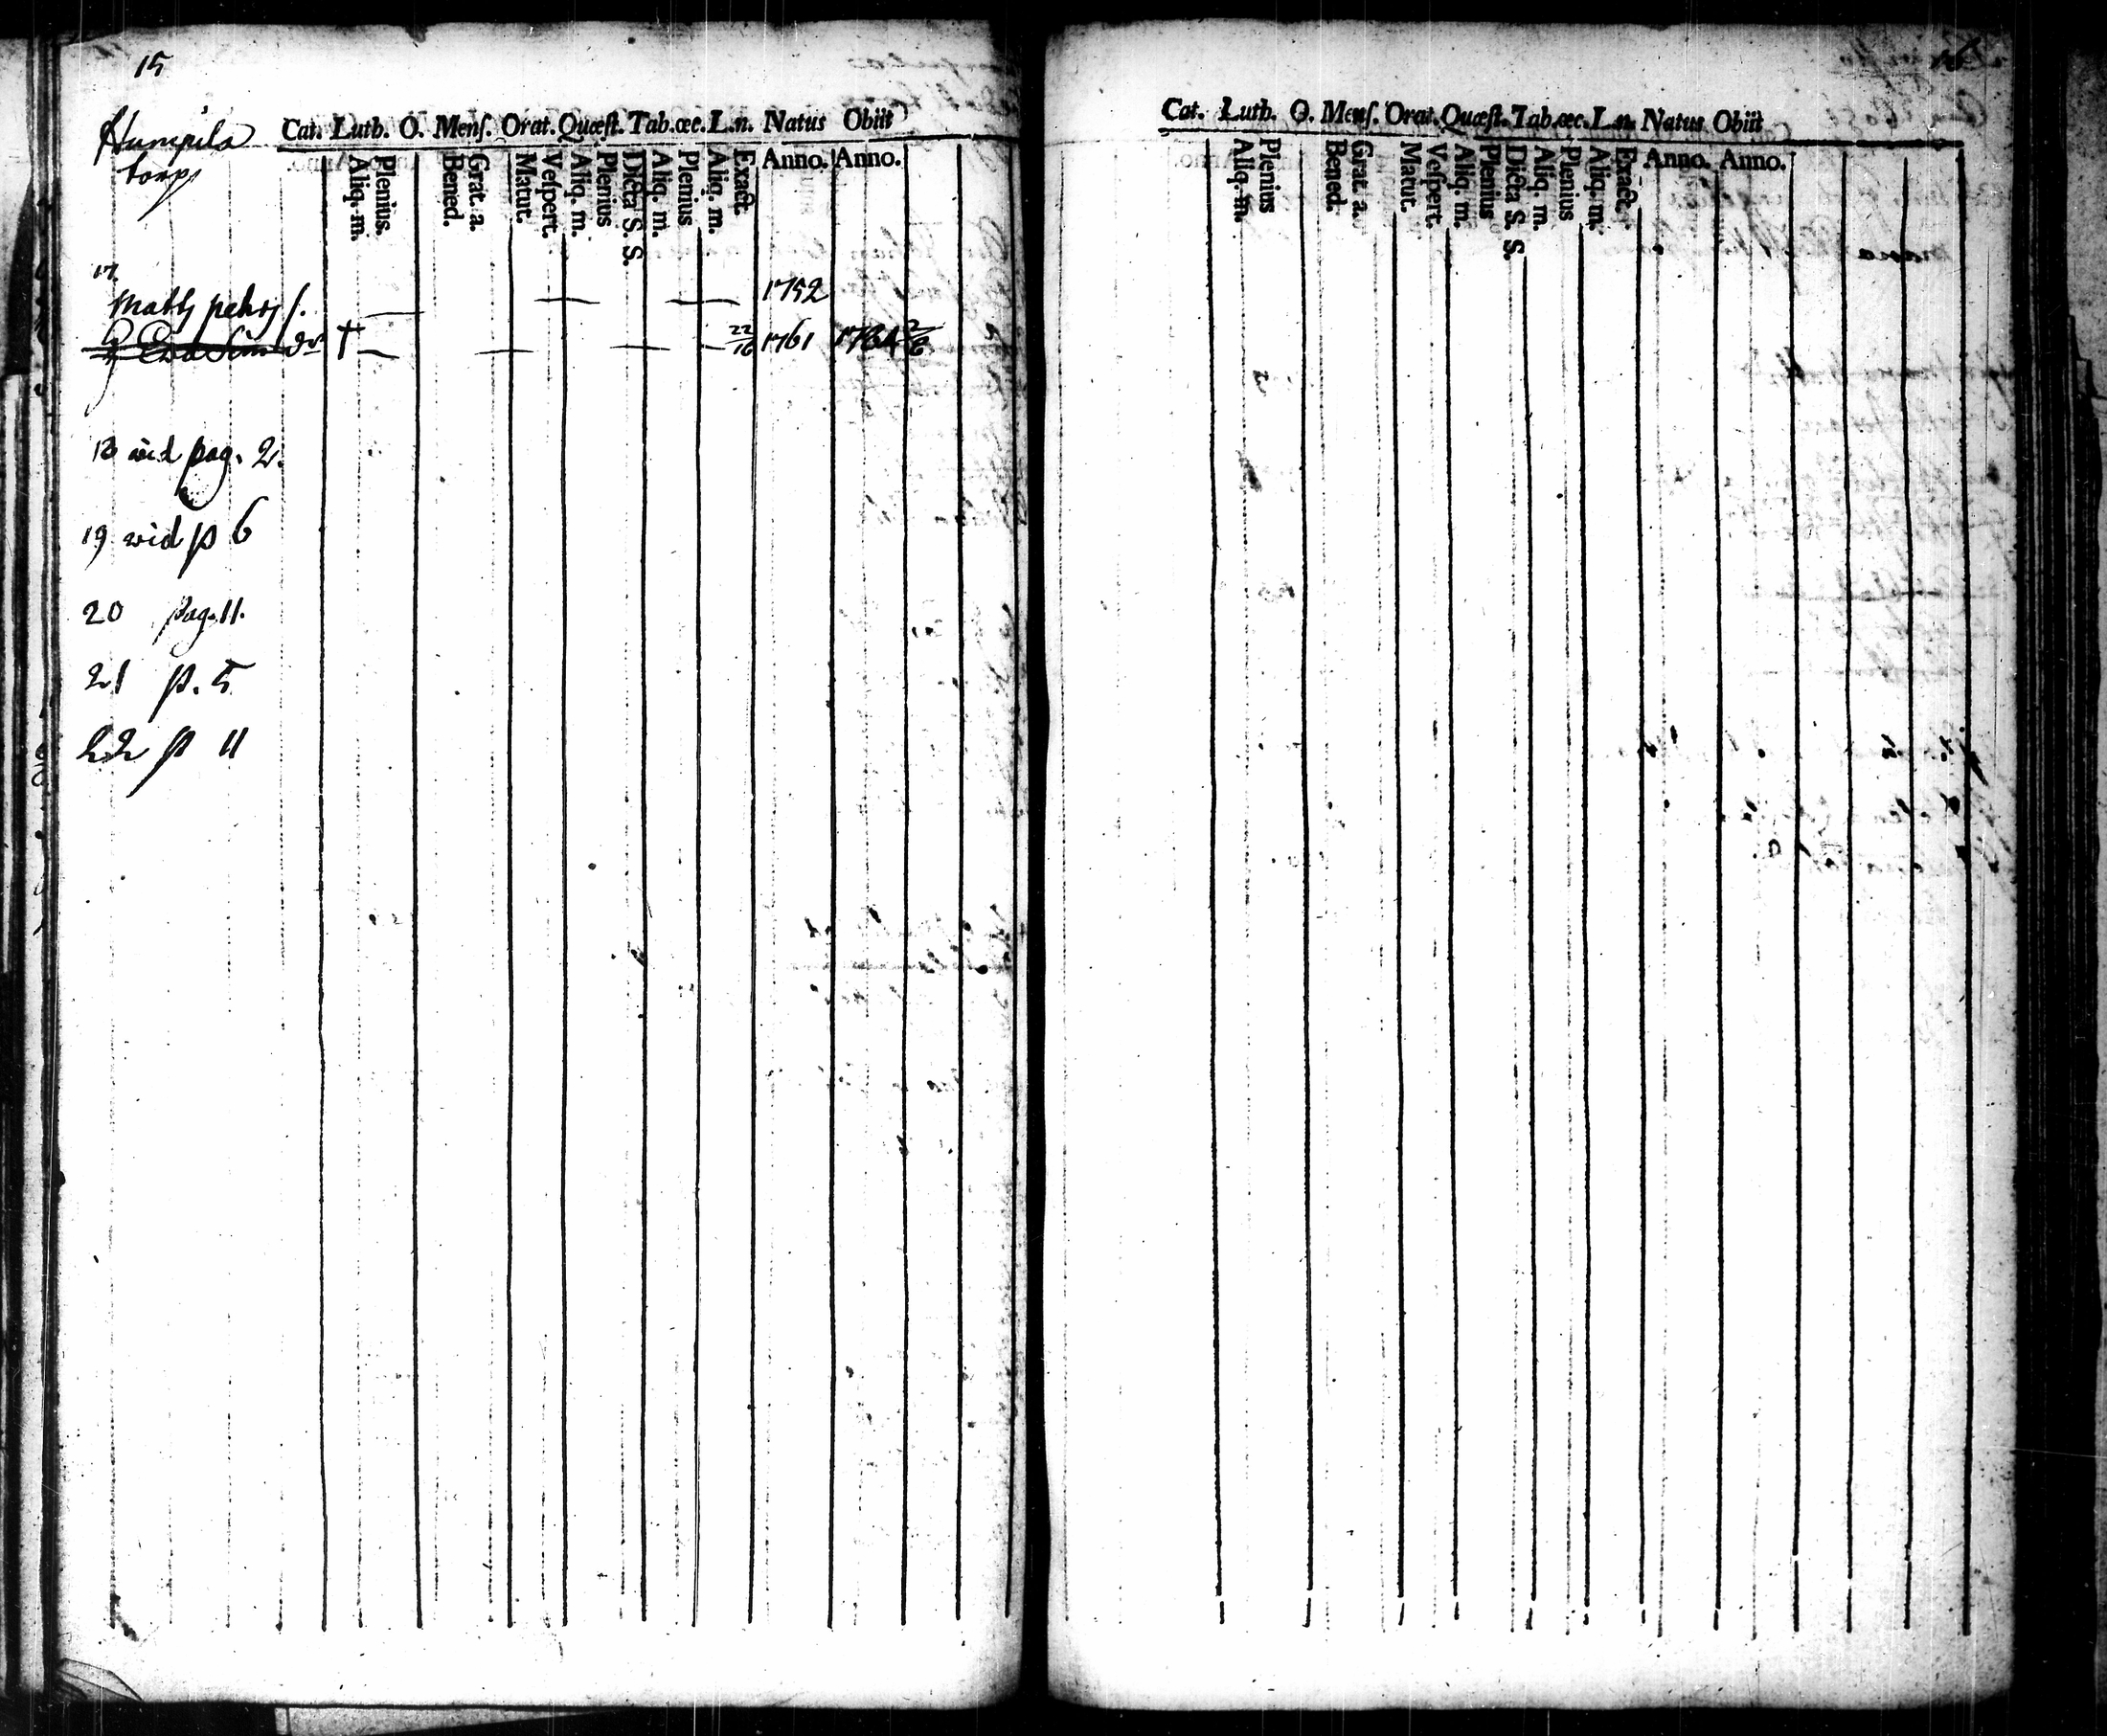 15
Humpila
torp
Cat. Luth. O. Menſ. Orat. Quæſt. Tab. œc. L. n. Natus Obiit
Aliq. m. Plenius. Bened. Grat. a. Matut. Veſpert. Aliq. m. Plenius Dicta S. S. Aliq. m. Plenius Aliq. m. Exact. Anno. Anno.
17
Matts
1752
Eva Sim dr † 22/16 1761
18 vid pag. 2.
19 vid p 6
20 pag. 11.
21 p. 5
22 p 11
Cat. Luth. O. Menſ. Orat. Quæſt. Tab. œc. L. n. Natus Obiit
Aliq. m. Plenius Bened. Grat. a. Matut. Veſpert. Aliq. m. Plenius Dicta S. S. Aliq. m. Plenius Aliq. m. Exact. Anno. Anno.